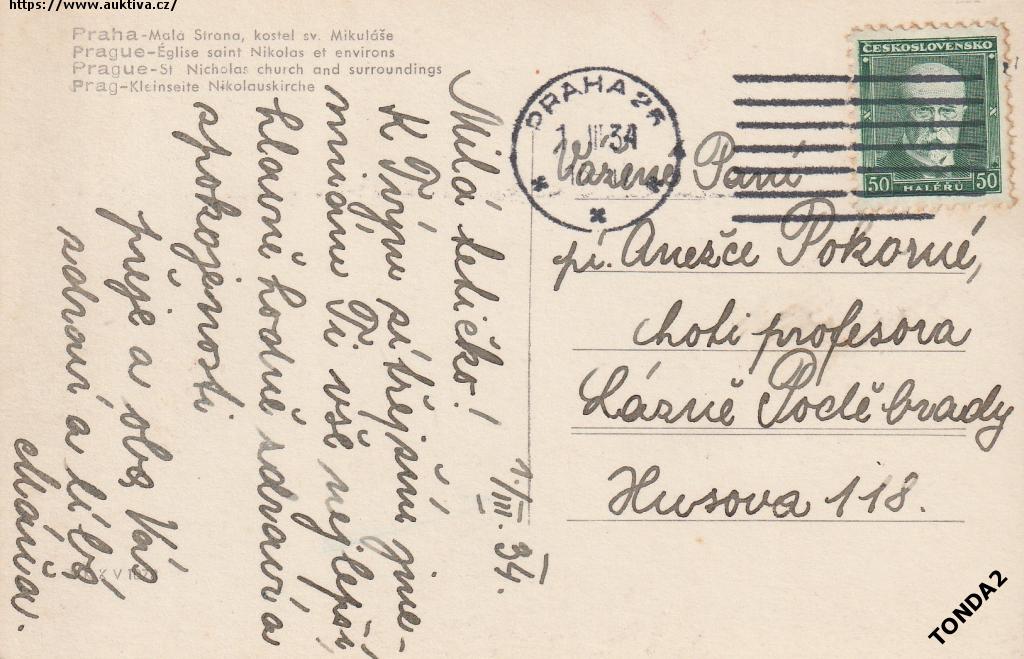 https://www.auktiva.cz/
Praha-Malá Strana, kostel sv. Mikuláše
Prague-Église saint Nikolas et environs
Prague-St Nicholas church and surroundings
Prag-Kleinseite Nikolauskirche
ČESKOSLOVENSKO
50 HALÉŘŮ 50
PRAHA 25
1.III.34
Vážené Paní
pí. Anežče Pokorné,
choti profesora
Lázně Poděbrady
Husova 118.
1./III. 34.
Milá tetičko!
K Tvým zítřejším jme-
ninám Ti vše nejlepší
hlavně hodně zdraví a
spokojenosti
přeje a oba Vás
zdraví a líbá
Máňa.
TONDA2